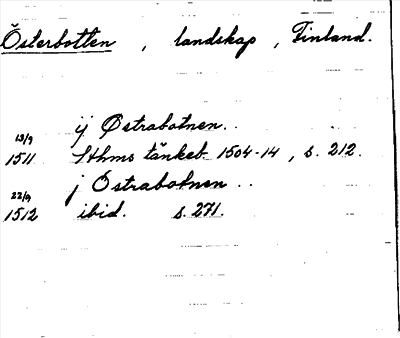 Österbotten, landskap, Finland.
ij Østrabotnen..
13/9
1511 Sthms tänkeb. 1504-14, s. 212.
j Ostrabotnen..
22/9
1512 ibid. s. 271.